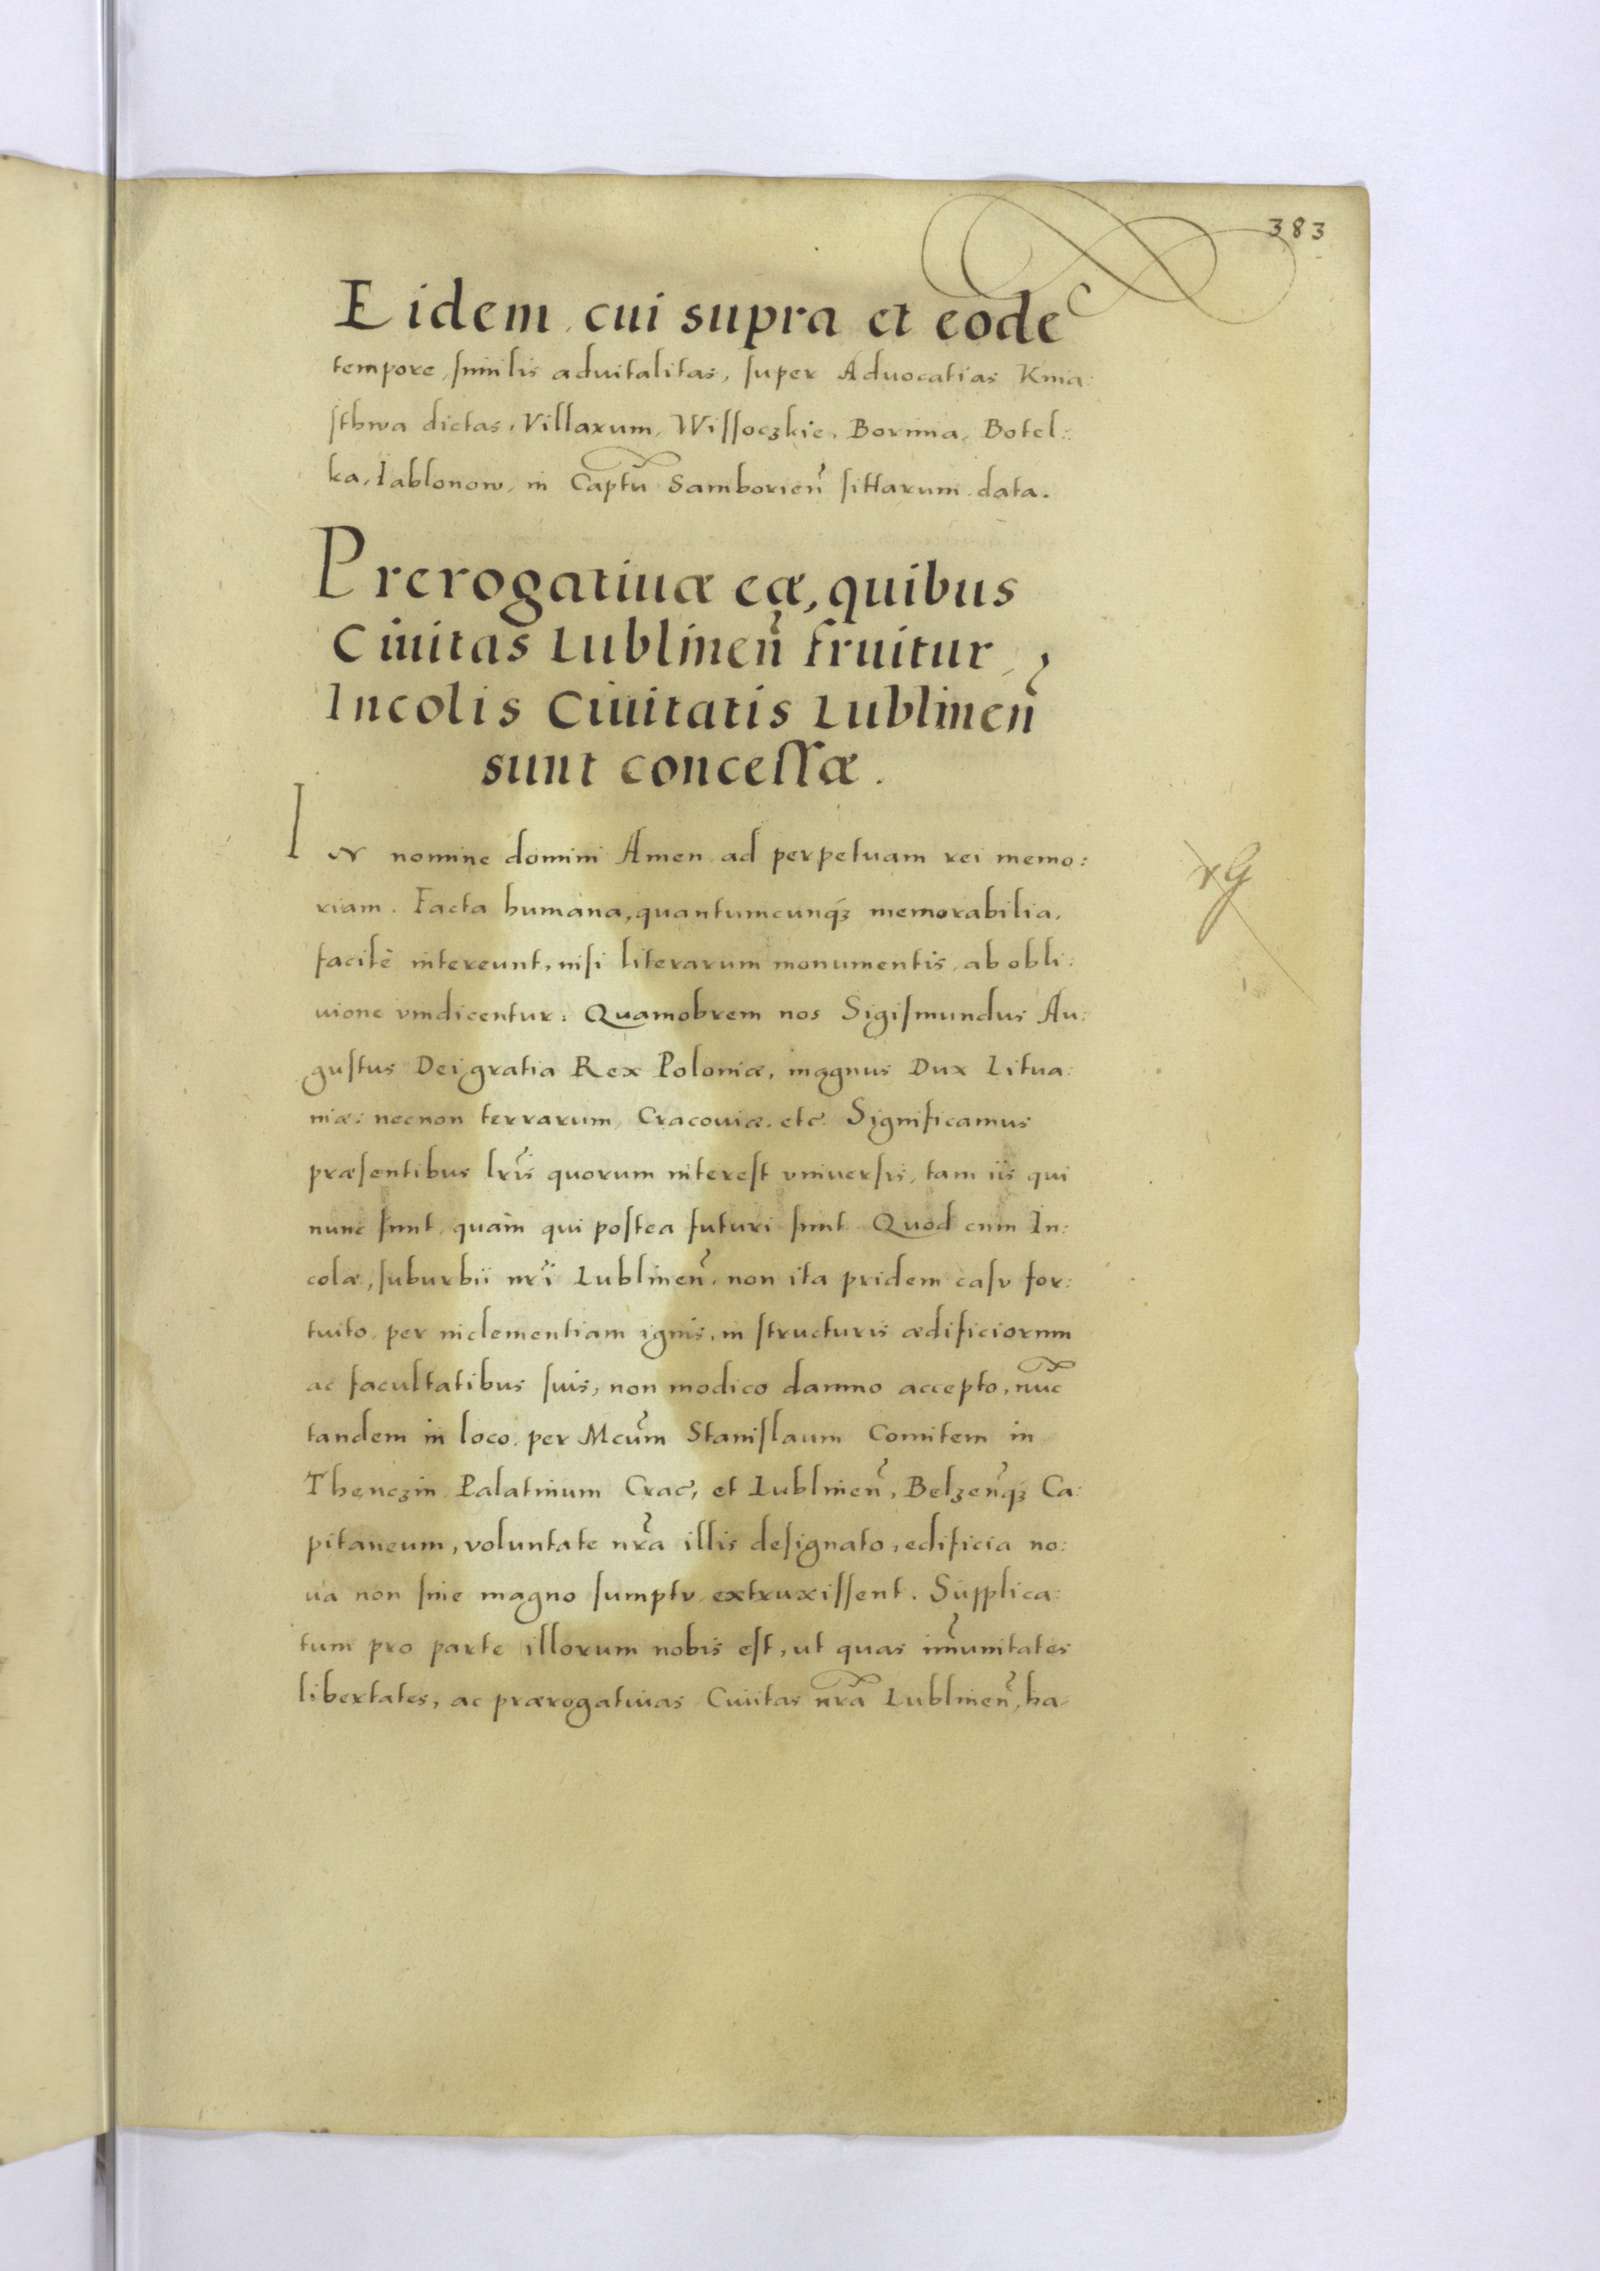 383
Eidem cui supra et eodē
tempore, similis aduitalitas, super Aduocatias Kmia:
sthwa dictas, Villarum, Wissoczkie, Borinia, Botel:
ka, Iablonow, in Captū Samborieñ sittarum data.
Prerogatiuæ eæ, quibus
Ciuitas Lublineñ fruitur,
Incolis Ciuitatis Lublineñ
sunt concessæ.
IN nomine domini Amen ad perpetuam rei memo:
riam. Facta humana, quantumcunq3 memorabilia,
facilè intereunt, nisi literarum monumentis, ab obli:
uione vindicentur: Quamobrem nos Sigismundus Au:
gustus Dei gratia Rex Poloniæ, magnus Dux Litua:
niæ: necnon terrarum, Cracouiæ. etc̃. Significamus
præsentibus lr̃is quorum interest vniuersis, tam iis qui
nunc sunt, quàm qui postea futuri sunt. Quod cum In:
colæ, suburbii nr̃i Lublineñ, non ita pridem casv for:
tuito, per inclementiam ignis, in structuris ædificiorum
ac facultatibus suis, non modico damno accepto, nuc̃
tandem in loco, per Mcũm Stanislaum Comitem in
Thenczin Palatinum Crac̃, et Lublineñ, Belzeñq3 Ca:
pitaneum, voluntate nr̃a illis designato, edificia no:
ua non sine magno sumptv extruxissent. Supplica:
tum pro parte illorum nobis est, ut quas im̃unitates
libertates, ac prærogatiuas Ciuitas nr̃a Lublineñ, ha-